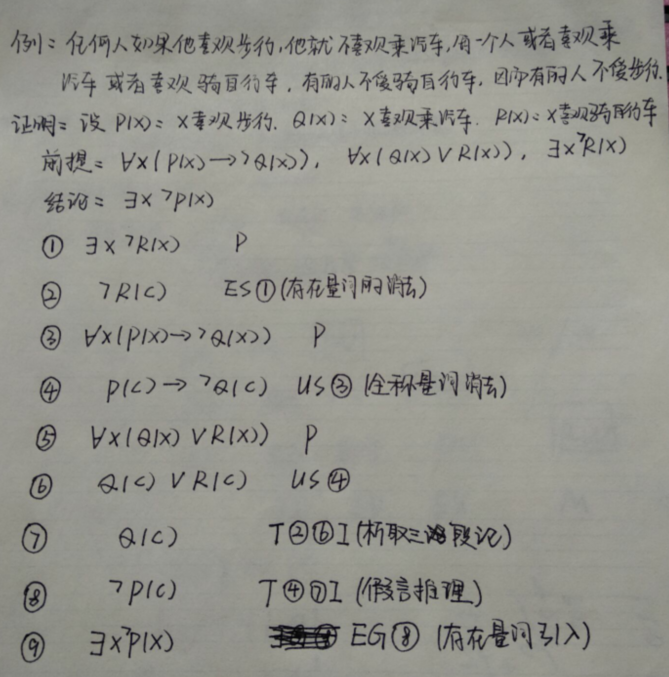 例1: 任何人如果他喜欢步行,他就不喜欢乘汽车,每一个人或者喜欢乘
汽车或者喜欢骑自行车,有的人不爱骑自行车,因而有的人不爱步行.
证明: 设 P(x): x喜欢步行. Q(x): x喜欢乘汽车. R(x): x喜欢骑自行车
前提: ∀x(P(x)→¬Q(x)), ∀x(Q(x)∨R(x)), ∃x¬R(x)
结论: ∃x¬P(x)
① ∃x¬R(x) P
② ¬R(c) ES①(存在量词的消去)
③ ∀x(P(x)→¬Q(x)) P
④ P(c)→¬Q(c) US③(全称量词消去)
⑤ ∀x(Q(x)∨R(x)) P
⑥ Q(c)∨R(c) US④
⑦ Q(c) T②⑥I(析取三段论)
⑧ ¬P(c) T④⑦I(假言推理)
⑨ ∃x¬P(x) EG⑧(存在量词引入)